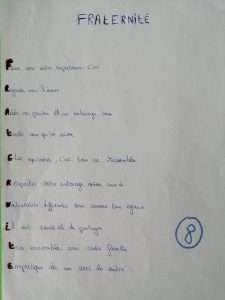 FRATERNITÉ
Faire une notre république c'est
Regarder vers l'avenir
Aider son prochain Et son entourage, sans
Taille ceux qu'on aime
Etre équitable, c'est bien se ressembler
Respecter notre entourage même avec la
Nationalité différente nous sommes tous égaux
Il est essentiel de partager
Tous ensemble une seule famille
Empathique les uns avec les autres
8